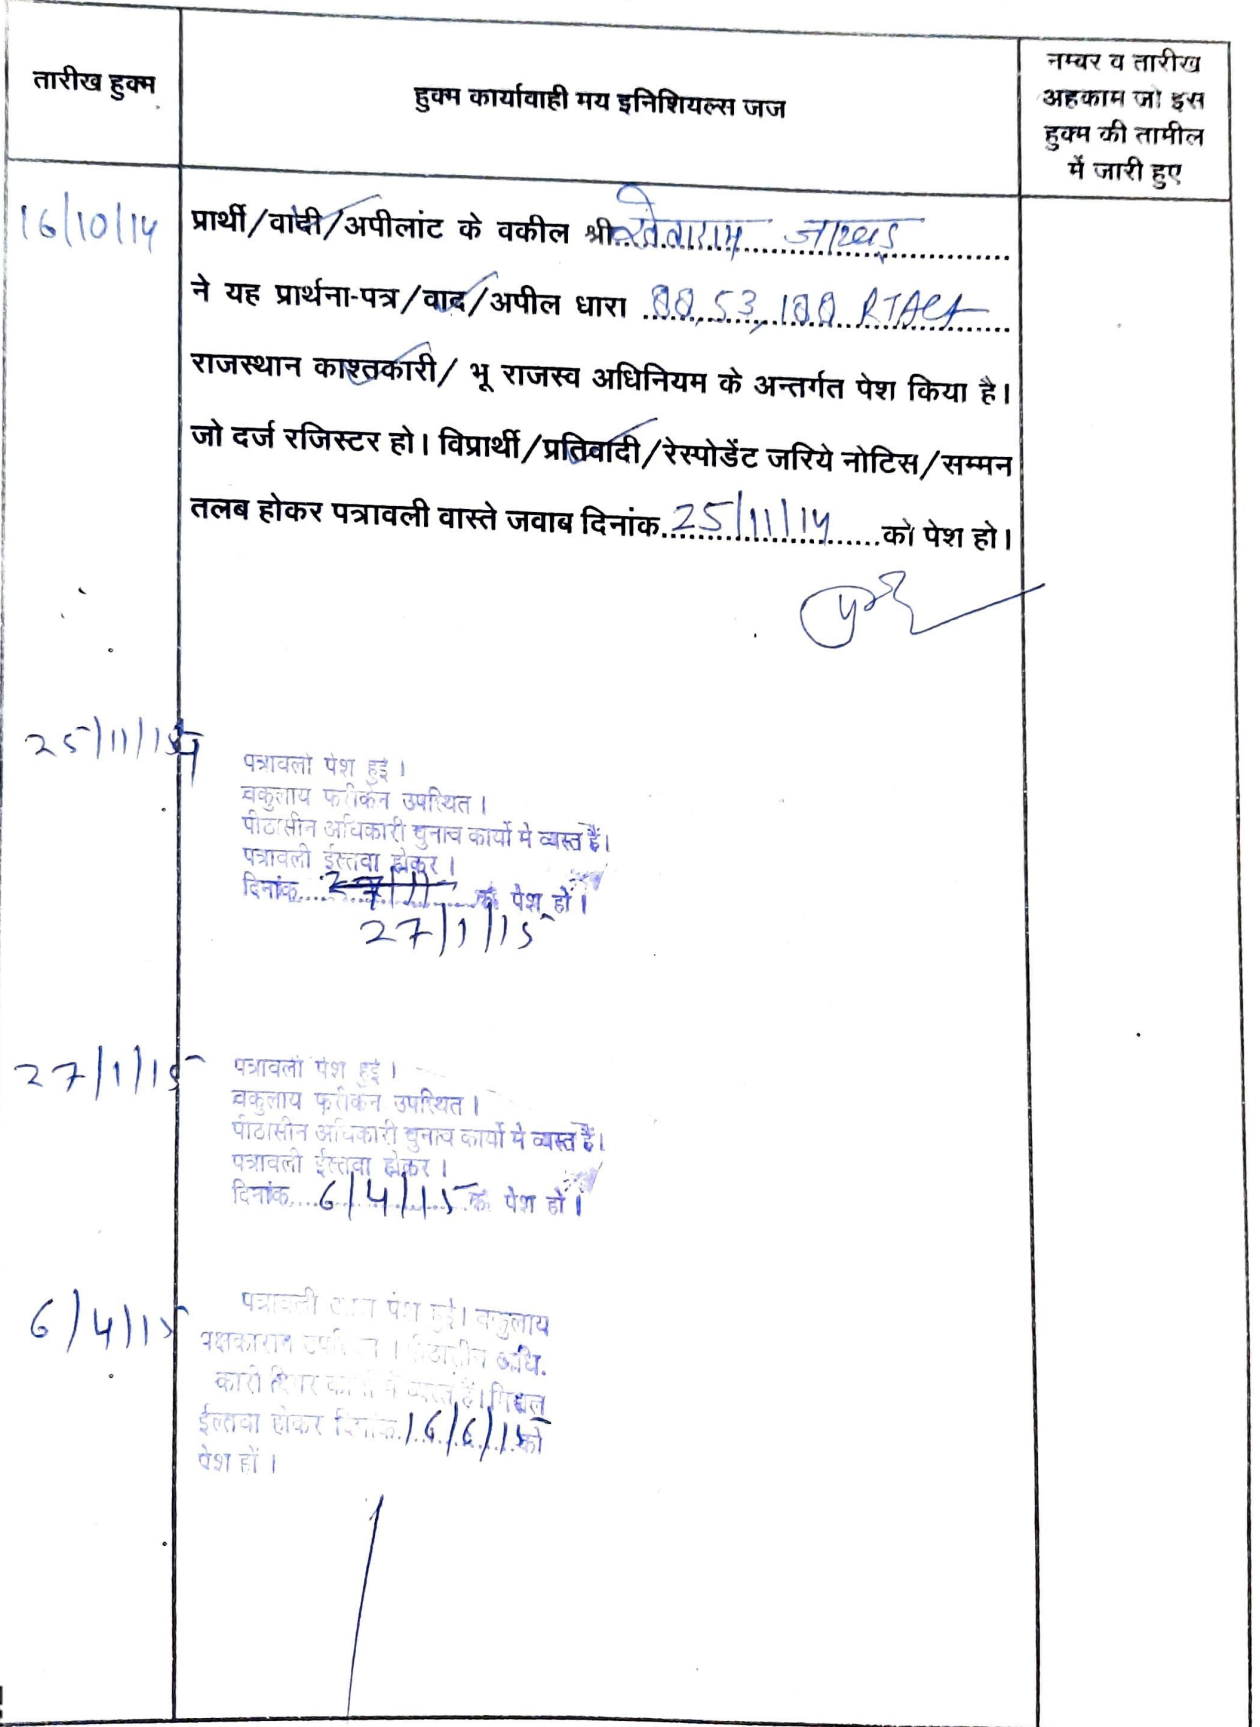 तारीख हुक्म
हुक्म कार्यावाही मय इनिशियल्स जज
नम्बर व तारीख
अहकाम जो इस
हुक्म की तामील
में जारी हुए
16/10/14
प्रार्थी/वादी/अपीलांट के वकील श्री
ने यह प्रार्थना-पत्र/वाद/अपील धारा 88, 53, 188 RTAct
राजस्थान काश्तकारी/ भू राजस्व अधिनियम के अन्तर्गत पेश किया है।
जो दर्ज रजिस्टर हो। विप्रार्थी/प्रतिवादी/रेस्पोडेंट जरिये नोटिस/सम्मन
तलब होकर पत्रावली वास्ते जवाब दिनांक 25/11/14 को पेश हो।
25/11/14
पत्रावली पेश हुई।
वकुलाय फरीकेन उपस्थित।
पीठासीन अधिकारी चुनाव कार्यो मे व्यस्त हैं।
पत्रावली ईस्तवा होकर।
दिनांक को पेश हो।
27/1/15
27/1/15
पत्रावली पेश हुई।
वकुलाय फरीकेन उपस्थित।
पीठासीन अधिकारी चुनाव कार्यो मे व्यस्त हैं।
पत्रावली ईस्तवा होकर।
दिनांक 6/4/15 को पेश हो।
6/4/15
पत्रावली पेश हुई। वकुलाय
पक्षकारान उपस्थित। पीठासीन अधि.
कारी कार्यो मे व्यस्त हैं।
ईल्तवा होकर दिनांक 16/6/15 को
पेश हों।